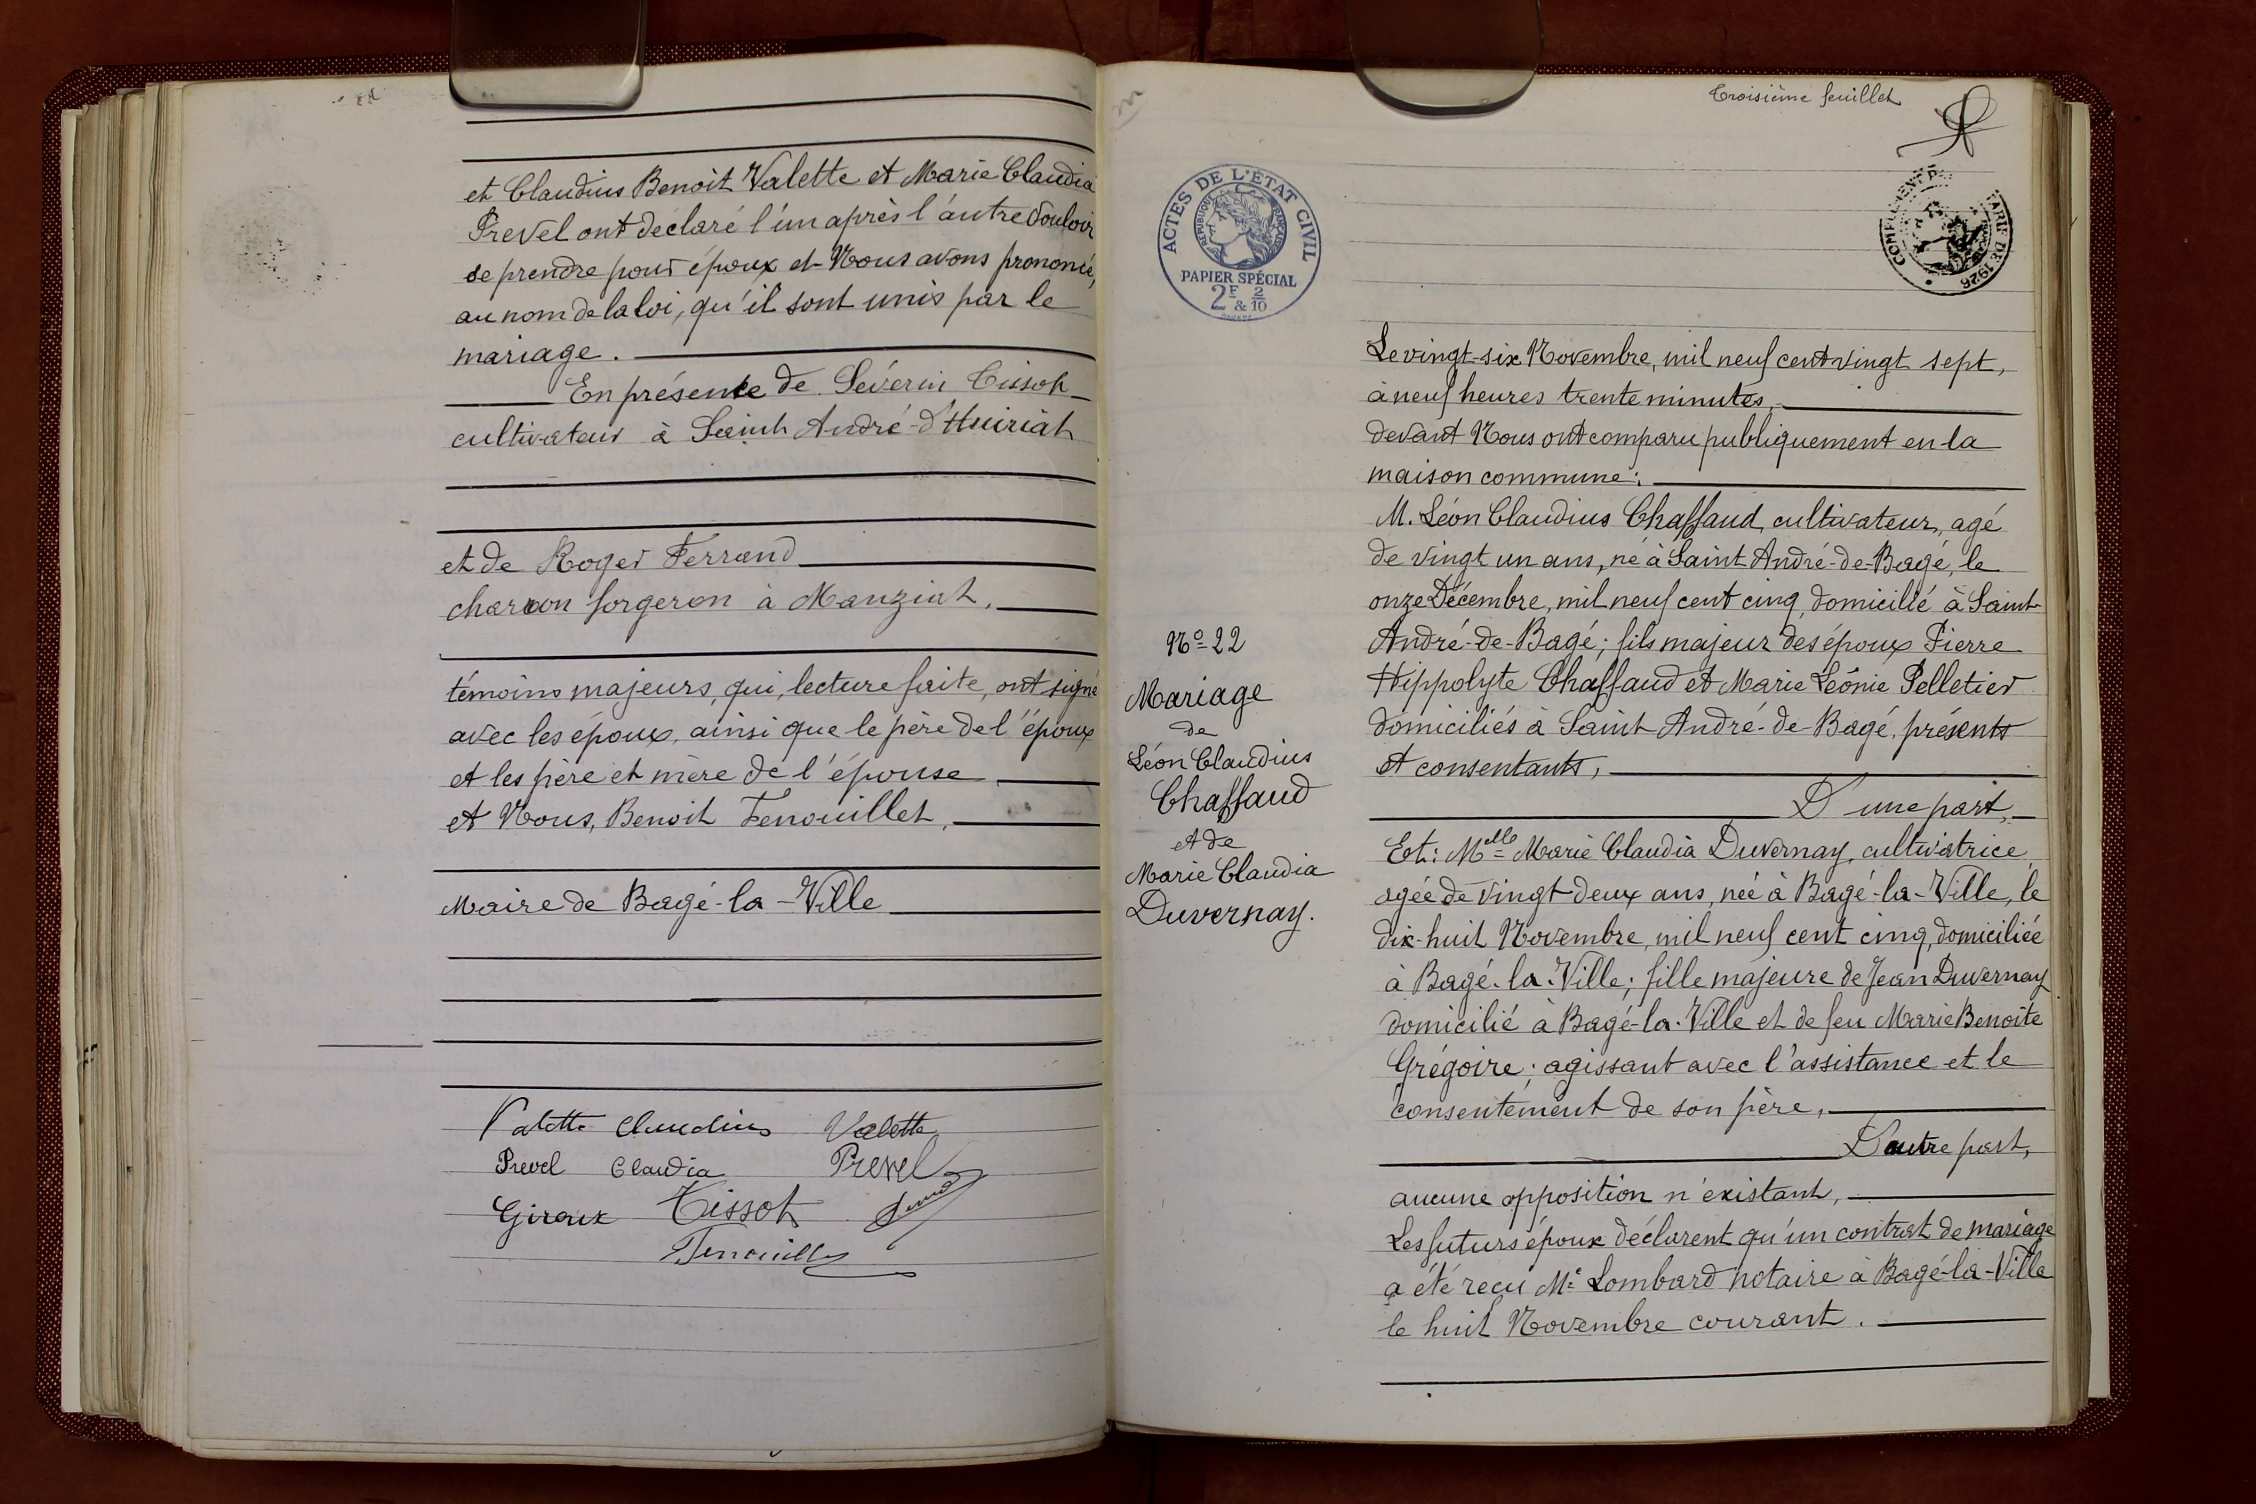 et Claudius Benoit Valette et Marie Claudia
Prevel ont déclaré l'un après l'autre vouloir
se prendre pour époux et Nous avons prononcé,
au nom de la loi, qu'il sont unis par le
mariage.
En présence de Séverin Tissot
cultivateur à Saint André-d'Huiriat
et de Roger Ferrand
charron forgeron à Manziat,
témoins majeurs, qui, lecture faite, ont signé
avec les époux, ainsi que le père de l'époux
et les père et mère de l'épouse
et Nous, Benoit Fenouillet,
Maire de Bagé-la-Ville
Valette Claudius Valette
Prevel Claudia Prevel
Giroux Tissot
Fenouillet
Troisième feuillet
ACTES DE L'ÉTAT CIVIL
RÉPUBLIQUE FRANÇAISE
PAPIER SPÉCIAL
2F & 2/10
DE 1926
Le vingt-six Novembre, mil neuf cent vingt sept,
à neuf heures trente minutes,
devant Nous ont comparu publiquement en la
maison commune:
M. Léon Claudius Chaffaud, cultivateur, agé
de vingt un ans, né à Saint André-de-Bagé, le
onze Décembre, mil neuf cent cinq, domicilié à Saint-
André-de-Bagé; fils majeur des époux Pierre
Hippolyte Chaffaud et Marie Léonie Pelletier
domiciliés à Saint André-de-Bagé, présents
et consentants,
D'une part,
Et: Melle Marie Claudia Duvernay, cultivatrice,
agée de vingt-deux ans, née à Bagé-la-Ville, le
dix-huit Novembre, mil neuf cent cinq, domiciliée
à Bagé-la-Ville; fille majeure de Jean Duvernay
domicilié à Bagé-la-Ville et de feu Marie Benoite
Grégoire; agissant avec l'assistance et le
consentement de son père,
D'autre part,
aucune opposition n'existant,
Les futurs époux déclarent qu'un contrat de mariage
a été reçu Me Lombard notaire à Bagé-la-Ville
le huit Novembre courant.
No 22
Mariage
de
Léon Claudius
Chaffaud
et de
Marie Claudia
Duvernay.